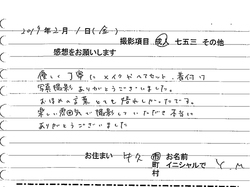 2019年2月1日(金)
撮影項目 成人 七五三 その他
感想をお願いします
優しく丁寧にメイクとヘアセット、着付け
写真撮影ありがとうございました。
おほめの言葉とても嬉しかったです。
楽しい雰囲気で撮影していただき本当に
ありがとうございました
お住まい 牛久 市 町 村 お名前 イニシャルで Y.M